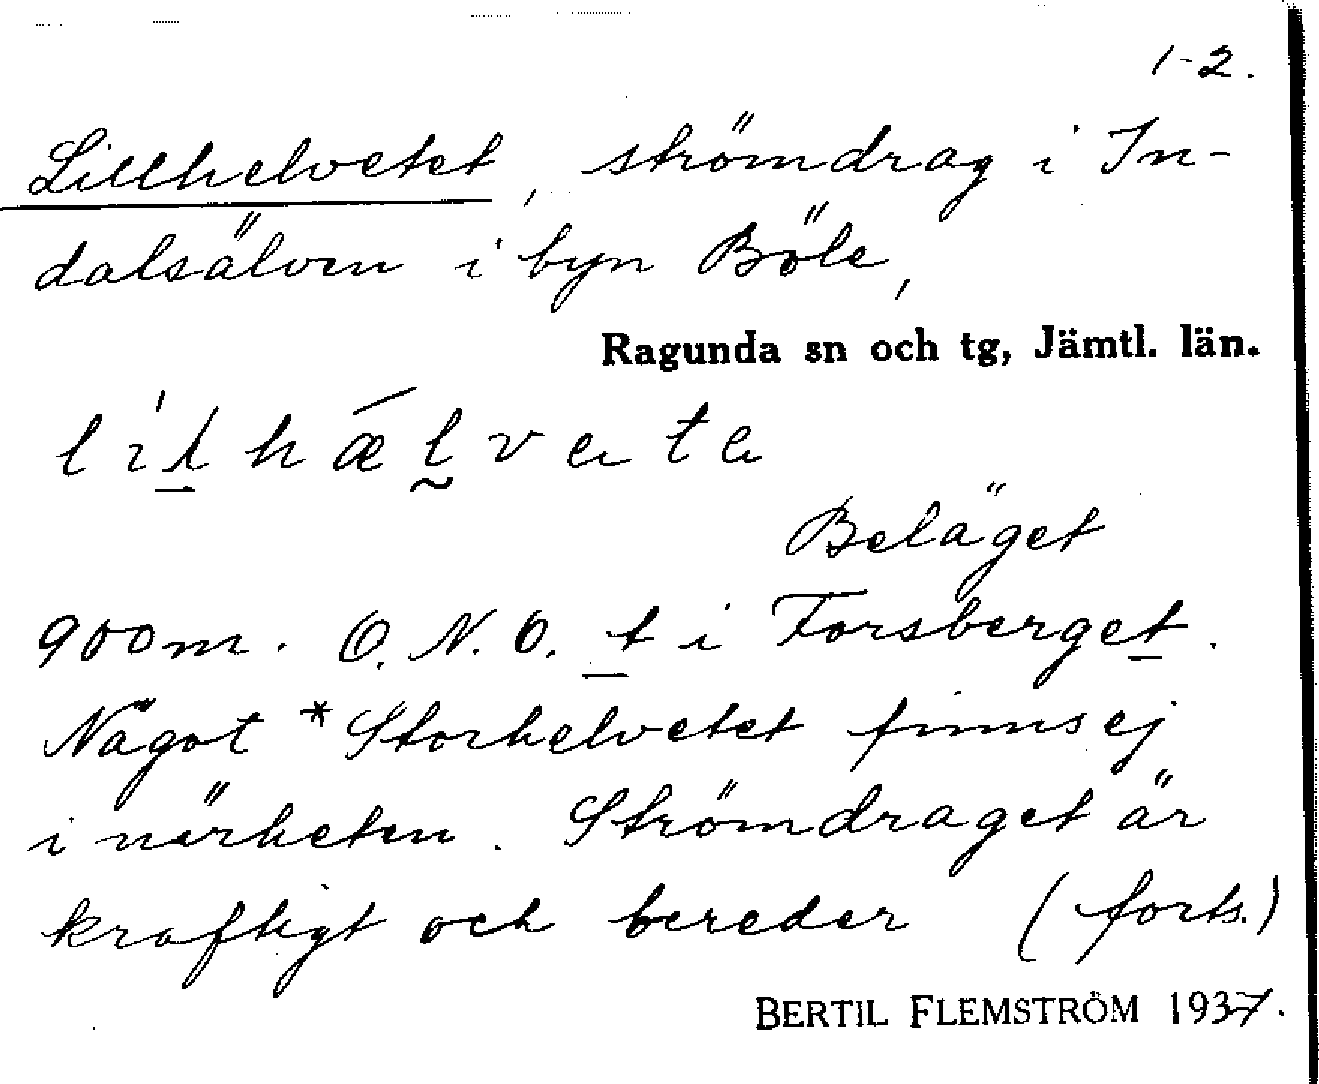 1-2.
Lillhelvetet, strömdrag i In-
dalsälven i byn Böle,
Ragunda sn och tg, Jämtl. län.
Beläget
900 m. O.N.O. t i Forsberget.
Något *Storhelvetet finns ej
i närheten. Strömdraget är
kraftigt och bereder (forts.)
BERTIL FLEMSTRÖM 1937.